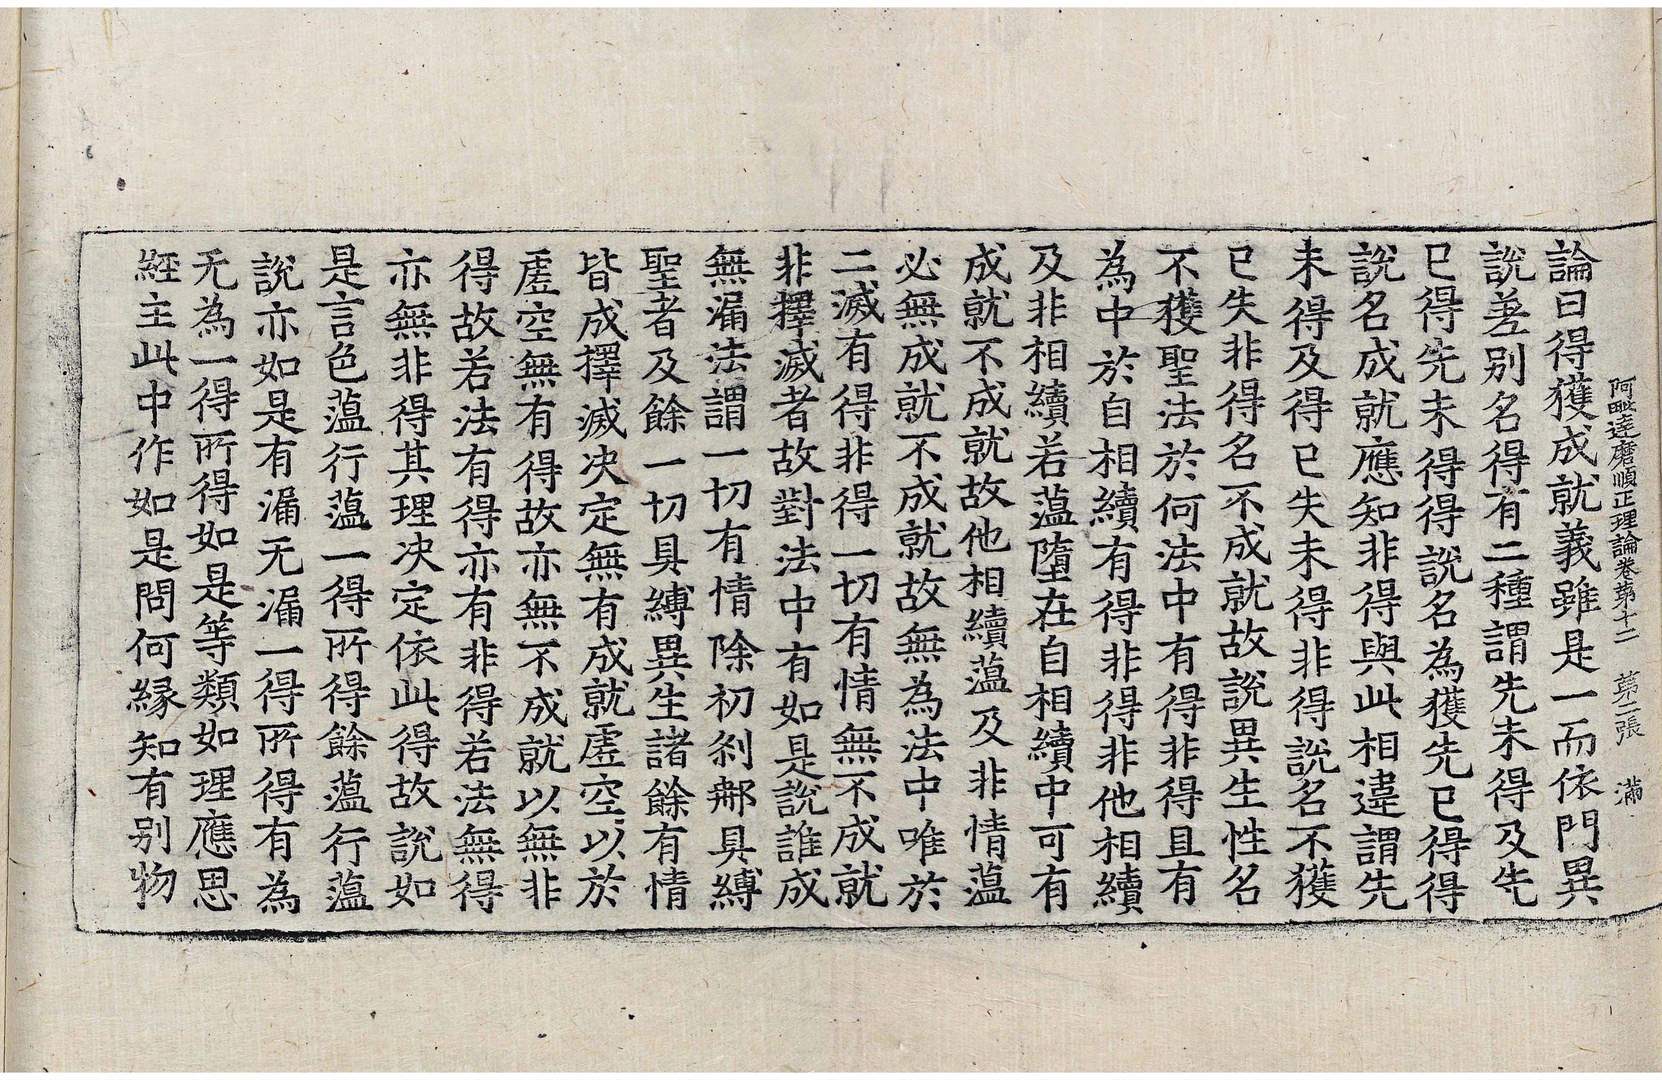 阿毗達磨順正理論卷第十二　第二張　滿
論曰得獲成就義雖是一而依門異
說差别名得有二種謂先未得及先
已得先未得得說名為獲先已得得
說名成就應知非得與此相違謂先
未得及得已失未得非得說名不獲
已失非得名不成就故說異生性名
不獲聖法於何法中有得非得且有
為中於自相續有得非得非他相續
及非相續若蘊墮在自相續中可有
成就不成就故他相續蘊及非情蘊
必無成就不成就故無為法中唯於
二滅有得非得一切有情無不成就
非擇滅者故對法中有如是說誰成
無漏法謂一切有情除初刹那具縛
聖者及餘一切具縛異生諸餘有情
皆成擇滅决定無有成就虛空以於
虛空無有得故亦無不成就以無非
得故若法有得亦有非得若法無得
亦無非得其理决定依此得故說如
是言色蘊行蘊一得所得餘蘊行蘊
說亦如是有漏无漏一得所得有為
无為一得所得如是等類如理應思
經主此中作如是問何緣知有别物